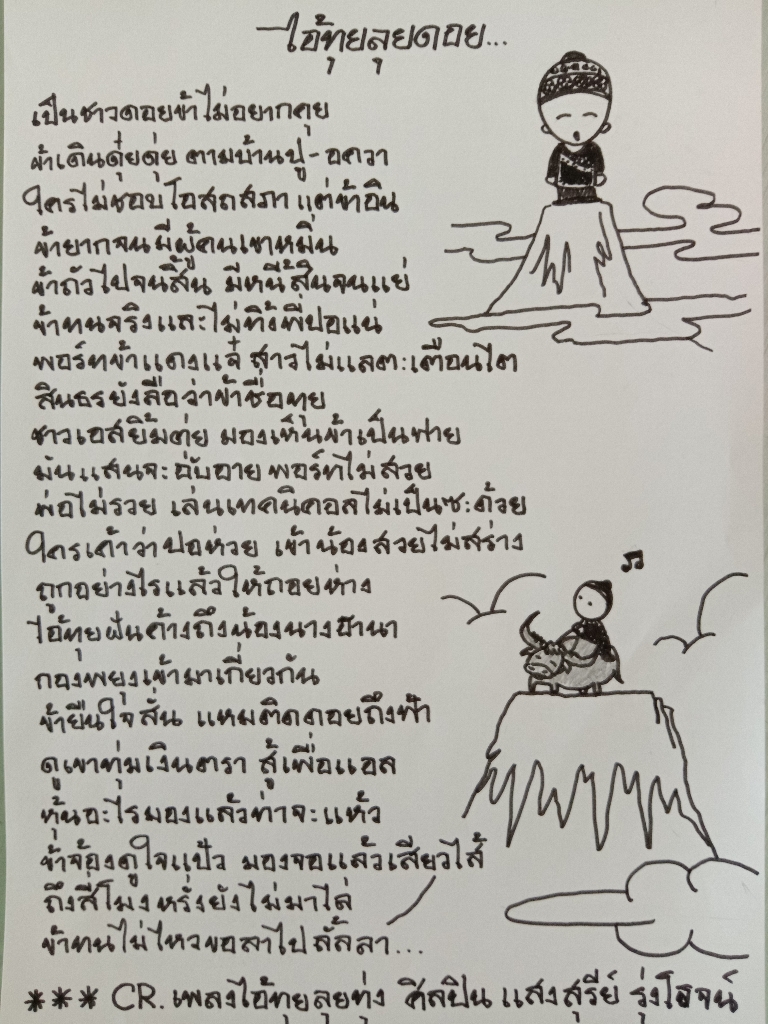 ไอ้ทุยลุยดอย...
เป็นชาวดอยข้าไม่อยากคุย
ข้าเดินดุ่ยดุ่ย ตามบ้านปู-อควา
ใครไม่ชอบโอสถสภา แต่ข้าอิน
ข้ายากจนมีผู้คนเขาหมิ่น
ข้าถัวไปจนสิ้น มีหนี้สินจนแย่
ข้าทนจริงและไม่ทิ้งพี่ปอแน่
พอร์ทข้าแดงแจ๋ สาวไม่แลตะเตือนไต
สินธรยังลือว่าข้าชื่อทุย
ชาวเอสยิ้มตุ่ย มองเห็นข้าเป็นฟาย
มันแสนจะอับอาย พอร์ทไม่สวย
พ่อไม่รวย เล่นเทคนิคอลไม่เป็นซะด้วย
ใครเค้าว่าปอห่วย เข้าน้องสวยไม่สร่าง
ถูกอย่างไรแล้วให้ถอยห่าง
ไอ้ทุยฝันค้างถึงน้องนางฮานา
กองพยุงเข้ามาเกี่ยวกัน
ข้ายืนใจสั่น แหมติดดอยถึงฟ้า
ดูเขาทุ่มเงินตรา สู้เพื่อแอล
หุ้นอะไรมองแล้วท่าจะแห้ว
ข้าจ้องดูใจแป้ว มองจอแล้วเสียวไส้
ถึงสี่โมงหรั่งยังไม่มาไล่
ข้าทนไม่ไหวขอลาไปลั้ลลา...
*** CR. เพลงไอ้ทุยลุยทุ่ง ศิลปิน แสงสุรีย์ รุ่งโรจน์